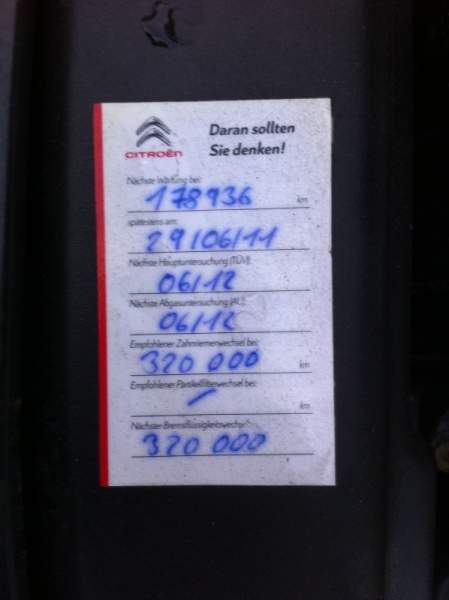 CITROËN
Daran sollten
Sie denken!
Nächste Wartung bei:
178936 km
spätestens am:
29/06/11
Nächste Hauptuntersuchung (TÜV):
06/12
Nächste Abgasuntersuchung (AU):
06/12
Empfohlener Zahnriemenwechsel bei:
320 000 km
Empfohlener Partikelfilterwechsel bei:
- km
Nächster Bremsflüssigkeitswechsel:
320 000